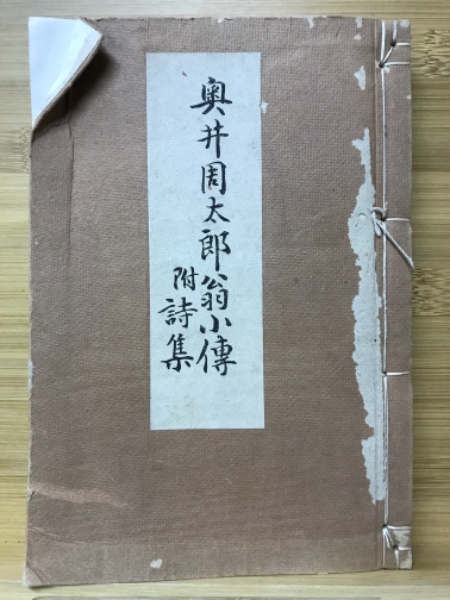 奥井周太郎翁小傳
附詩集